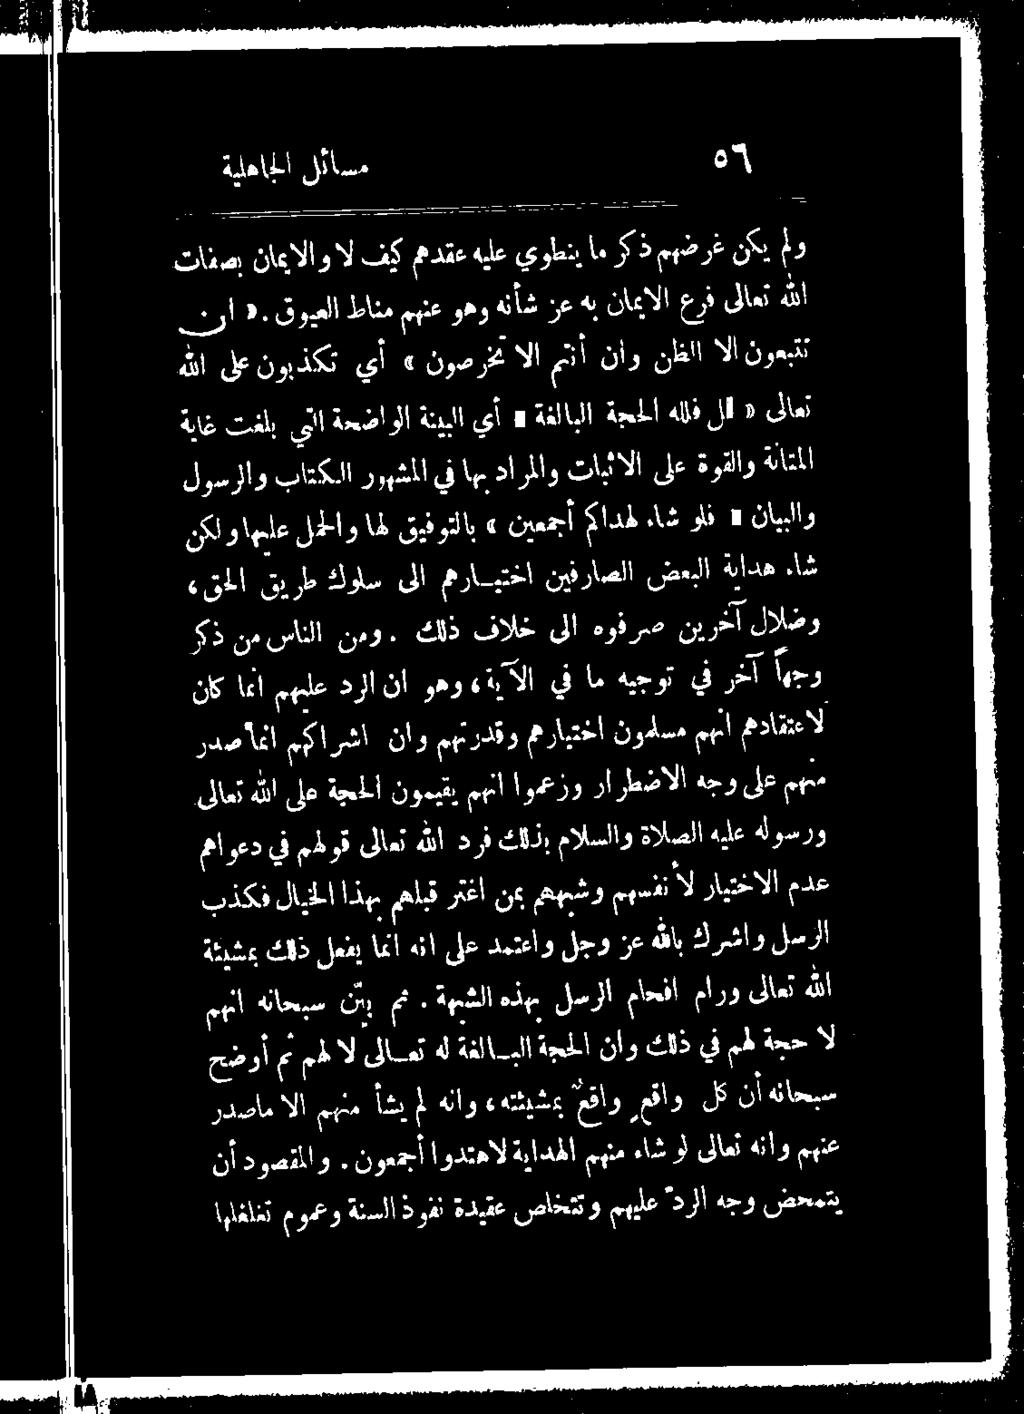 ٥٦ مسائل الجاهلية
ولم يكن غرضهم ذكر ما ينطوي عليه عقدهم كيف لا والايمان بصفات
الله تعالى فرع الايمان به عز شأنه وهو عنهم مناط العيوق. « ان
تتبعون الا الظن وان أنتم الا تخرصون » أي تكذبون على الله
تعالى « قل فلله الحجة البالغة » أي البينة الواضحة التي بلغت غاية
المتانة والقوة على الاثبات والمراد بها في المشهور الكتاب والرسول
والبيان « فلو شاء لهداكم أجمعين » بالتوفيق لها والحمل عليها ولكن
شاء هداية البعض الصارفين اختيارهم الى سلوك طريق الحق،
وضلال آخرين صرفوه الى خلاف ذلك. ومن الناس من ذكر
وجهاً آخر في توجيه ما في الآية، وهو ان الرد عليهم انما كان
لاعتقادهم انهم مسلمون اختيارهم وقدرتهم وان اشراكهم انما صدر
منهم على وجه الاضطرار وزعموا انهم يقيمون الحجة على الله تعالى
ورسوله عليه الصلاة والسلام بذلك فرد الله تعالى قولهم في دعواهم
عدم الاختيار لأنفسهم وشبههم بمن اغتر قبلهم بهذا الخيال فكذب
الرسل واشرك بالله عز وجل واعتمد على انه انما يفعل ذلك بمشيئة
الله تعالى ورام افحام الرسل بهذه الشبهة. ثم بيّن سبحانه انهم
لا حجة لهم في ذلك وان الحجة البالغة له تعالى لا لهم ثم أوضح
سبحانه أن كل واقعٍ واقعٌ بمشيئته، وانه لم يشأ منهم الا ماصدر
عنهم وانه تعالى لو شاء منهم الهداية لاهتدوا أجمعون. والمقصود أن
يتمحض وجه الرد عليهم وتتخلص عقيدة نفوذ السنة وعموم تغلغلها
٨٨